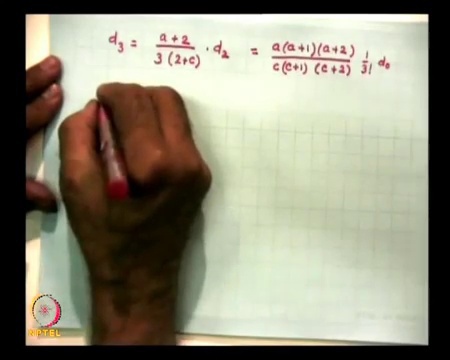 d₃ = a+2 / 3(2+c) · d₂ = a(a+1)(a+2) / c(c+1)(c+2) 1/3! d₀
NPTEL